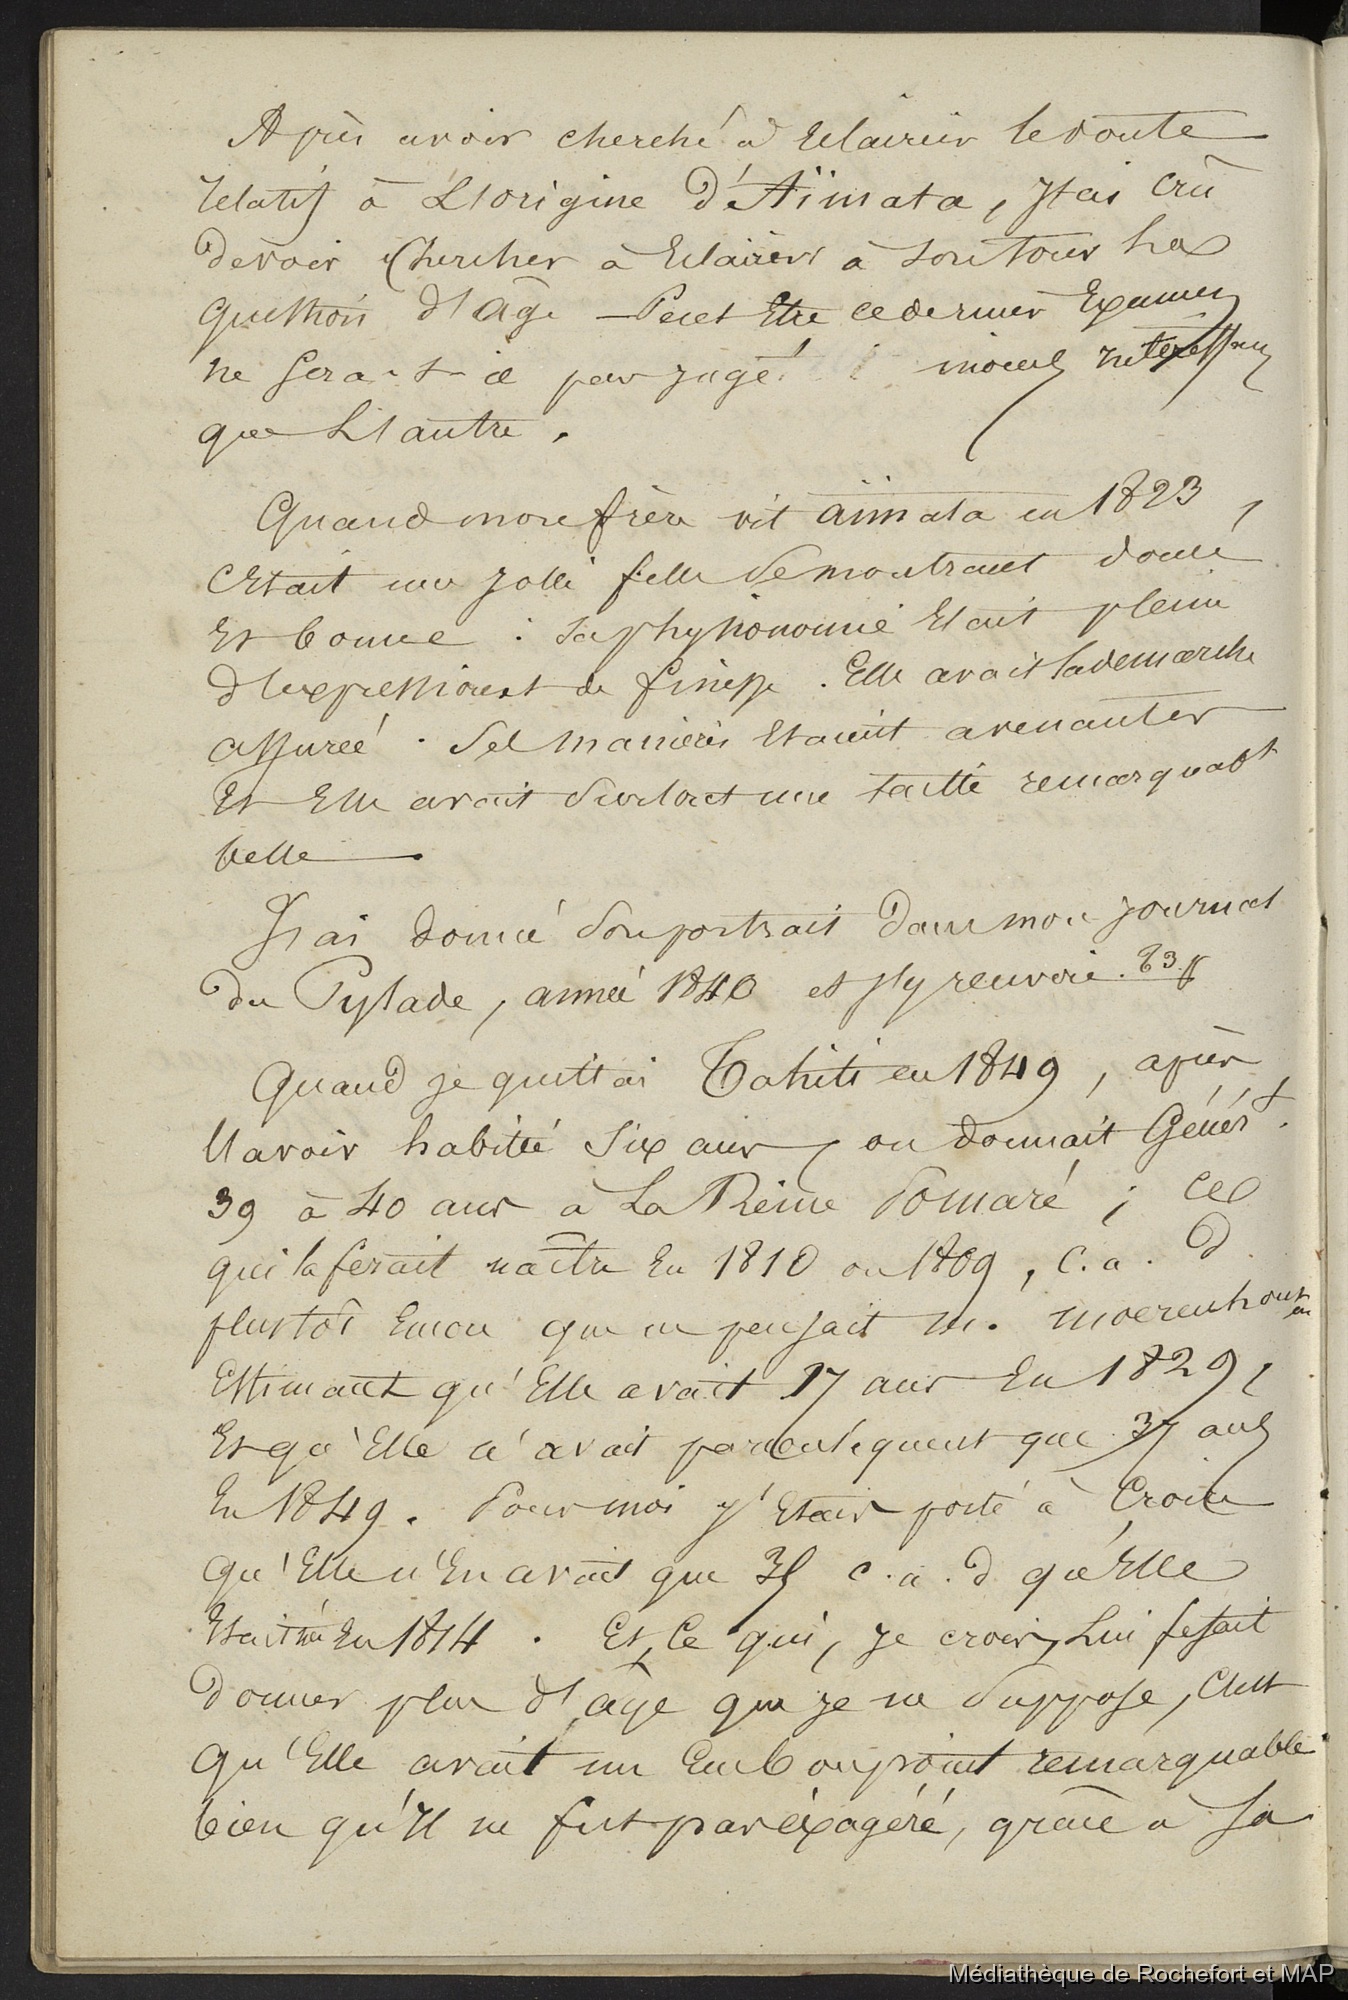 Après avoir cherché à Eclaircir le doute
relatif à L'origine d'Aïmata, J'ai crû
devoir Chercher à Eclaircir à son tour la
question d'âge – Peut Etre ce dernier Examen
ne sera-t-il pas jugé moins intéressant
que L'autre.
Quand mon frère vit aïmata en 1823,
c'Etait une jolie fille se montrant douce
Et bonne : sa physionomie Etait pleine
d'expression et de finesse. Elle avait la demarche
assurée. Ses manières Etaient avenantes
Et Elle avait surtout une taille remarquabt
belle
J'ai donné son portrait dans mon journal
du Pylade, année 1840 et j'y renvoie.
Quand je quittai Tahiti en 1849, après
l'avoir habité six ans, on donnait Génért.
39 à 40 ans à La Reine Pomaré ; ce
qui la ferait naître En 1810 ou 1809, c.a.d
plustôt Encor que ne pensait M. Moerenhout en
Estimant qu'Elle avait 17 ans En 1829,
Et qu'Elle n'avait par conséquent que 37 ans
En 1849. Pour moi j'Etais porté à Croire
qu'Elle n'En avait que 35 c.a.d qu'Elle
Etait née En 1814. Et, Ce qui, je crois, Lui fesait
donner plus d'âge que je ne suppose, c'est
qu'Elle avait un Embonpoint remarquable
bien qu'Il ne fut pas éxagéré, grâce à sa
Médiathèque de Rochefort et MAP